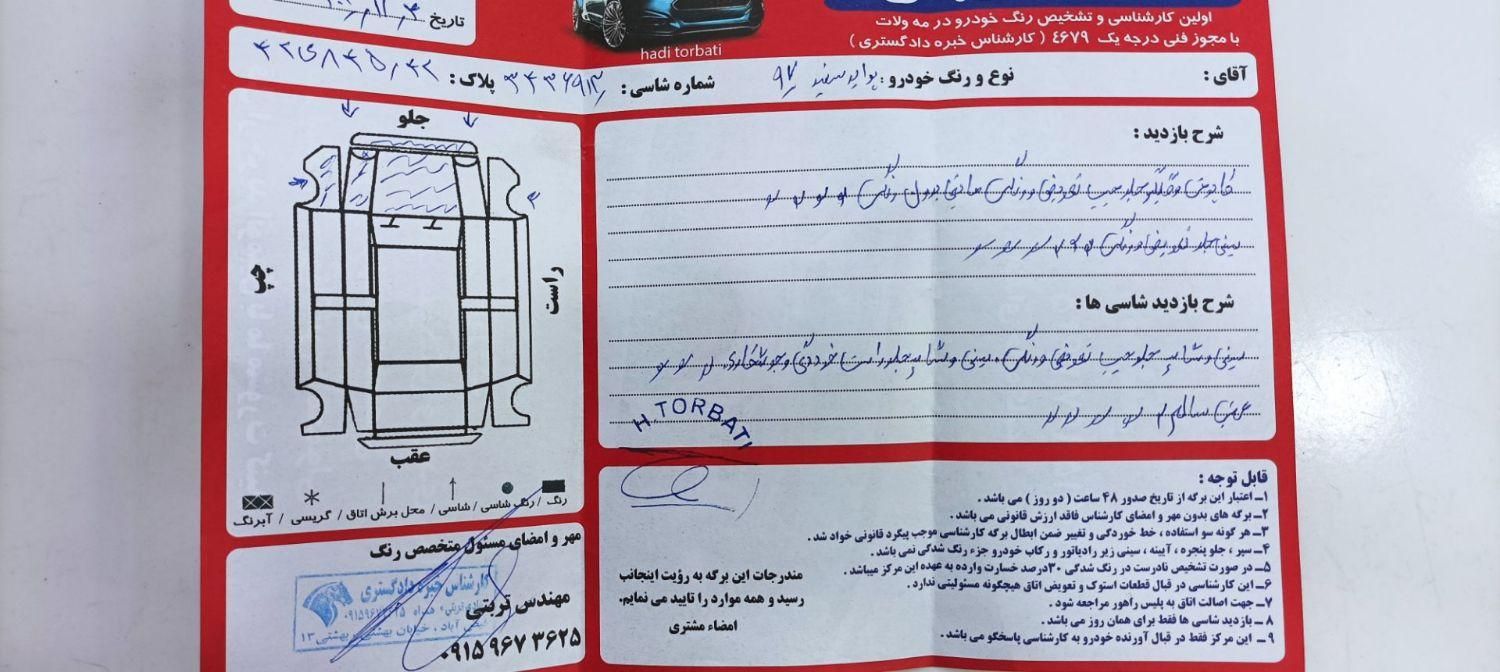 اولین کارشناسی و تشخیص رنگ خودرو در مه ولات
با مجوز فنی درجه یک ٤٦٧٩ ( کارشناس خبره دادگستری )
hadi torbati
تاریخ
آقای :
نوع و رنگ خودرو : پراید سفید ۹۲
شماره شاسی : ۳۴۳۶۹۱۲
پلاک :
شرح بازدید :
کاپوت و گلگیر جلو چپ تعویض و رنگ
سینی جلو تعویض و رنگ
شرح بازدید شاسی ها :
سینی و شاسی جلو چپ تعویض و رنگ، سینی و شاسی جلو راست خوردگی و جوشکاری
عقب سالم
H. TORBATI
جلو
چپ
راست
عقب
رنگ / رنگ شاسی / شاسی / محل برش اتاق / گریسی / آبرنگ
مهر و امضای مسئول متخصص رنگ
کارشناس خبره دادگستری
مهندس تربتی
۰۹۱۵ ۹۶۷ ۳۶۲۵
مندرجات این برگه به رؤیت اینجانب
رسید و همه موارد را تایید می نمایم.
امضاء مشتری
قابل توجه :
۱ـ اعتبار این برگه از تاریخ صدور ۴۸ ساعت ( دو روز ) می باشد .
۲ـ برگه های بدون مهر و امضای کارشناس فاقد ارزش قانونی می باشد .
۳ـ هر گونه سوء استفاده ، خط خوردگی و تغییر ضمن ابطال برگه کارشناسی موجب پیگرد قانونی خواد شد .
۴ـ سپر ، جلو پنجره ، آیینه ، سینی زیر رادیاتور و رکاب خودرو جزء رنگ شدگی نمی باشد .
۵ـ در صورت تشخیص نادرست در رنگ شدگی ۳۰درصد خسارت وارده به عهده این مرکز میباشد .
۶ـ این کارشناسی در قبال قطعات استوک و تعویض اتاق هیچگونه مسئولیتی ندارد .
۷ـ جهت اصالت اتاق به پلیس راهور مراجعه شود .
۸ ـ بازدید شاسی ها فقط برای همان روز می باشد .
۹ ـ این مرکز فقط در قبال آورنده خودرو به کارشناسی پاسخگو می باشد .